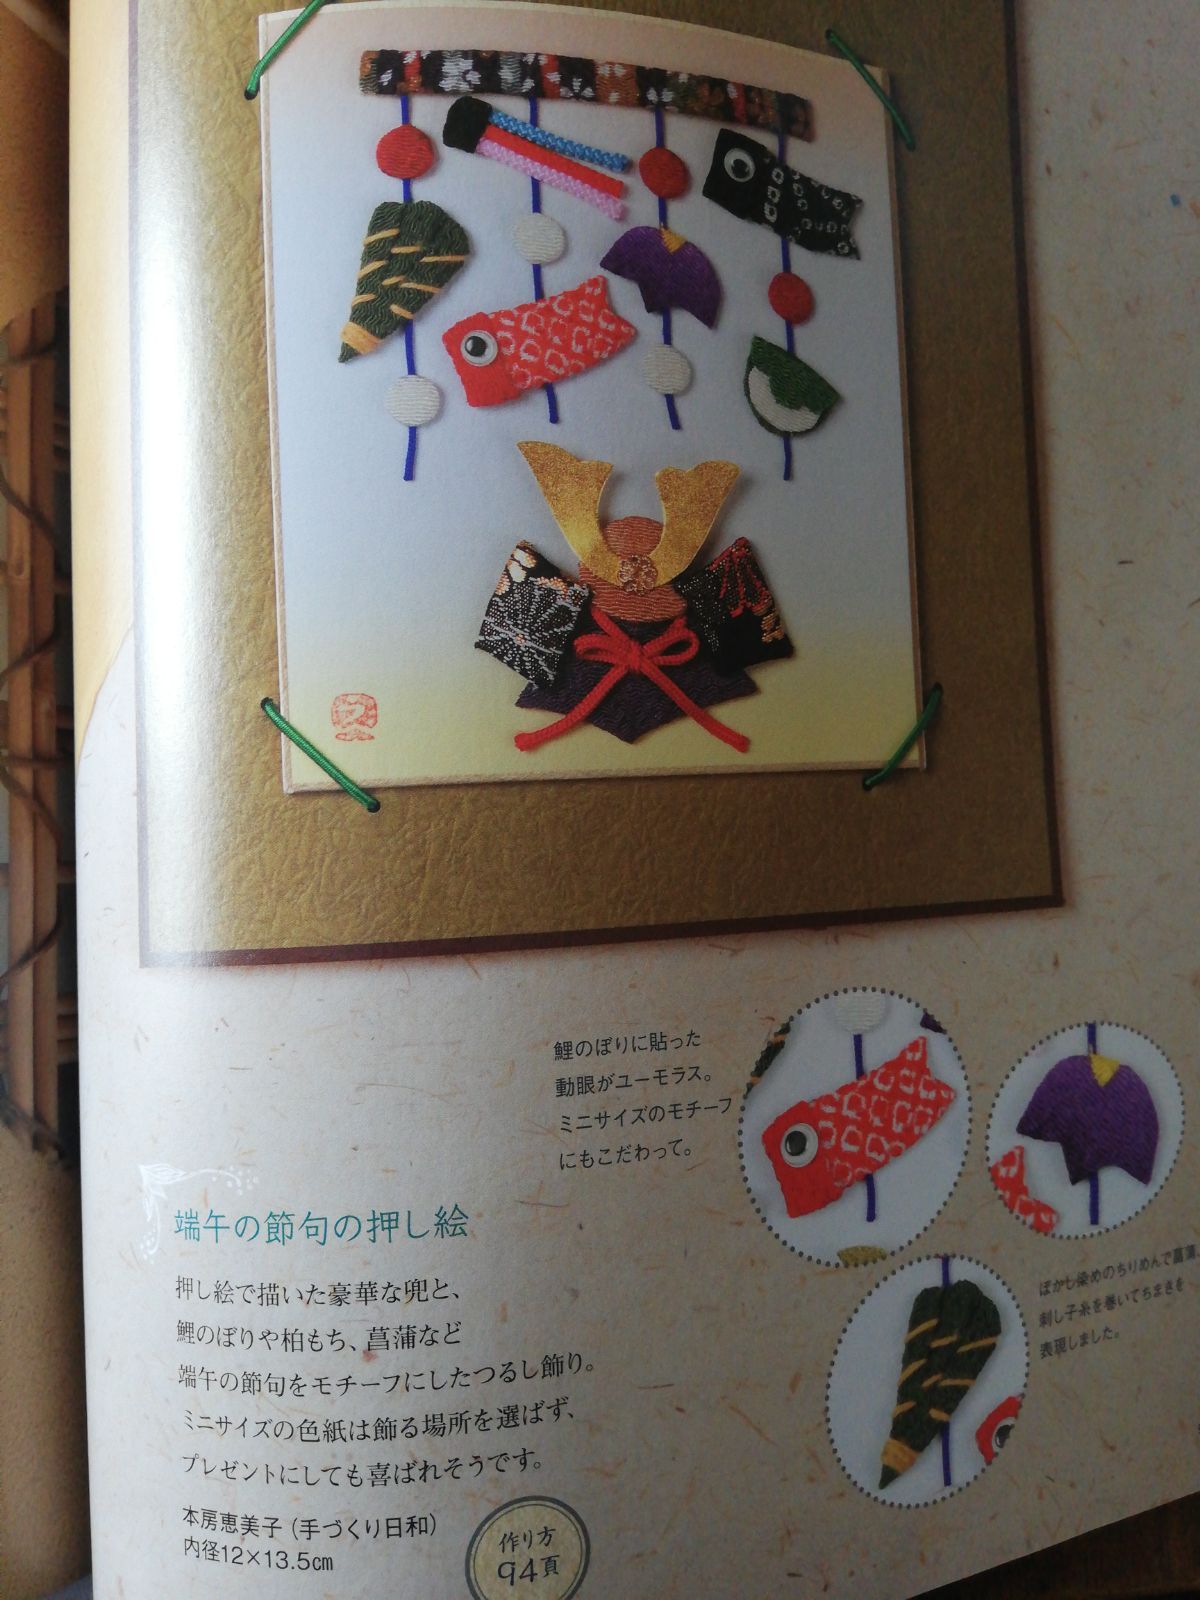 鯉のぼりに貼った
動眼がユーモラス。
ミニサイズのモチーフ
にもこだわって。
端午の節句の押し絵
押し絵で描いた豪華な兜と、
鯉のぼりや柏もち、菖蒲など
端午の節句をモチーフにしたつるし飾り。
ミニサイズの色紙は飾る場所を選ばず、
プレゼントにしても喜ばれそうです。
本房恵美子（手づくり日和）
内径12×13.5㎝
作り方
94頁
ぼかし染めのちりめんで菖蒲、
刺し子糸を巻いてちまきを
表現しました。